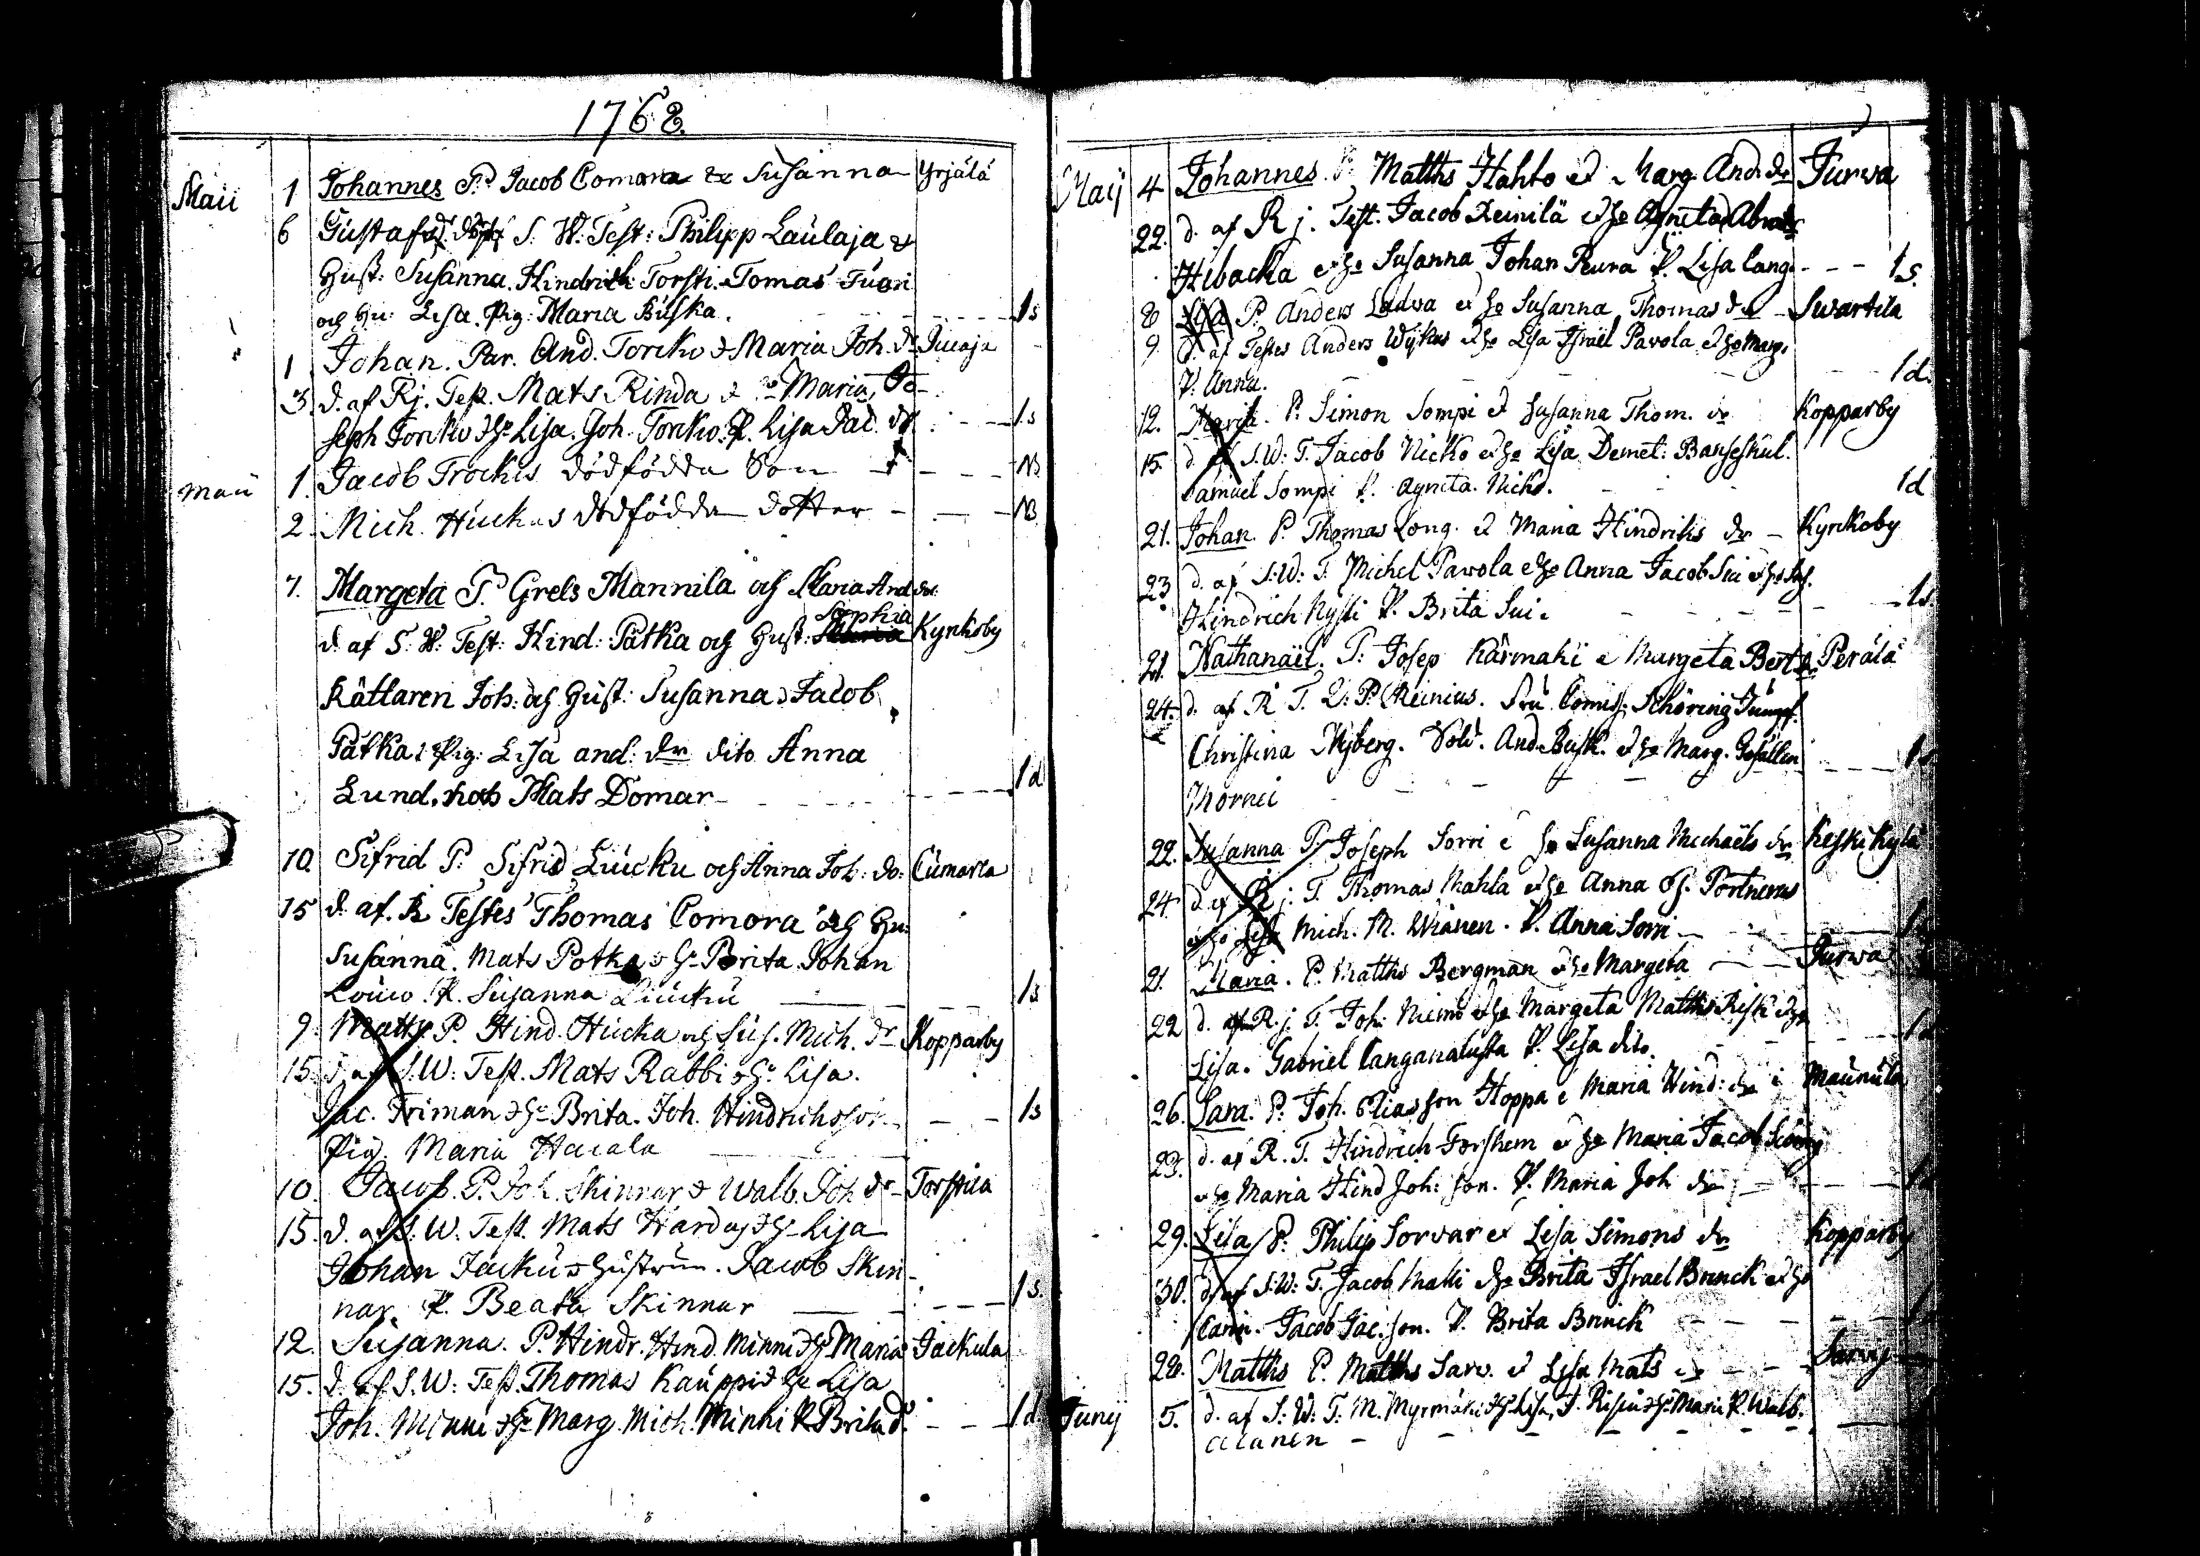 1768.
Maii 1 Johannes P. Jacob Comora & Susanna Yrjälä
6 Gustaf S. W. Test: Philipp Laulaja &
Gust: Susanna. Hindrich Torsti. Tomas Tuori
och Hu: Lisa. Pig: Maria Buska. 1 s
1 Johan. Par. And. Torcko & Maria Joh. dr
3. d. af Rj. Test. Mats Rinda & Maria, Jo-
seph Torcko & He Lisa. Joh. Torcko. P. Lisa Jac. dr 1 s
Maii 1. Jacob Trockis dödfödda Son NB
2. Mich. Huckas dödfödda dotter NB
7. Margeta P. Grels Mannila och Maria And. dr.
Sophia
d. af S. W. Test: Hind: Pätka och Gust: Kyrkoby
Rättaren Joh: och Gust: Susanna, Jacob
Pätka. Pig: Lisa and: dr dito Anna
Lund. Mats Domar 1 d
10 Sifrid P. Sifrid Luucku och Anna Joh: do: Cumarla
15 d. af. R Testes Thomas Comora och Hu:
Susanna. Mats Potka & H. Brita Johan
P. Susanna Luucku 1 s
9. Matts P. Hind. Hucka och Sus. Mich. dr Kopparby
15. d. af S. W: Test. Mats Rabbi & He Lisa.
Jac. Friman & He Brita. Joh. Hindrichsson 1 s
Pig. Maria
10. Jacob. P. Joh. Skinnar & Walb. Joh dr Torstila
15. d. af S. W. Test. Mats & He Lisa
Johan Jäcku & Gustrun. Jacob Skin-
nar. P. Beata Skinnar 1 s.
12. Susanna. P. Hindr. Hind. Minni & He Maria Jackula
15. d. af S. W: Test. Thomas Kauppi & He Lisa
Joh. Minni & He Marg. Mich. Minni P. Brita do. 1 d.
Maij 4 Johannes. P. Matths Hahto & Marg. And. dr Jurwa
22. d. af R j. Test. Jacob Reinilä & He Agneta Abrah
Hibacka & He Susanna Johan Rura P. Lisa Lang. 1 s.
8 Lisa P. Anders Ladwa & He Susanna Thomas dr Swartila
9. d. af Testes Anders & He Lisa Israel Pavola & He Marg.
P. Anna. 1 d.
12. Maria. P. Simon Sompi & Susanna Thom. dr Kopparby
15. d. af S. W: T. Jacob Nicko & He Lisa Demet:
Samuel Sompi P. Agneta. Nicko. 1 d
21. Johan. P. Thomas Long. & Maria Hindriks dr Kyrkoby
23 d. af S. W: T. Michel Pavola & He Anna Jacob Sui & He
Hindrich Nysti P. Brita Sui. 1 s.
21. Nathanaël. P. Josep Kärmäki & Margeta Bert Perälä
24. d. af R T. Reinius. Fru Schöring Jungf.
Christina Nyberg. Sold. And. Bask. & He Marg. Gesällen
22. Susanna P. Joseph Sorri & He Susanna Michaëls dr Keski Kylä
24. d. af R j. T. Thomas Mahla & He Anna
& He Lisa Mich. M. P. Anna Sorri
21. Maria. P. Matths Bergman & He Margeta Jurwa
22 d. af R. j. T. Joh. Niemi & He Margeta Matths Risk & He
Lisa. Gabriel P. Lisa dito.
26. Sara. P. Joh. Eliasson Hoppa & Maria Hind: dr Maunula
23. d. af R. T. Hindrich Forshem & He Maria Jacob
& He Maria Hind Joh: son. P. Maria Joh dr
29. Lisa P. Philip Sorvar & Lisa Simons dr Kopparby
30. d. af S. W: T. Jacob Maki & He Brita Israel Brinck & He
Carin. Jacob Jac. son. P. Brita Brinck
28. Matths P. Matths Sarv. & Lisa Mats
Junij 5. d. af S. W: T. M. Myrmäki & He Lisa, & He Maria P. Walb.